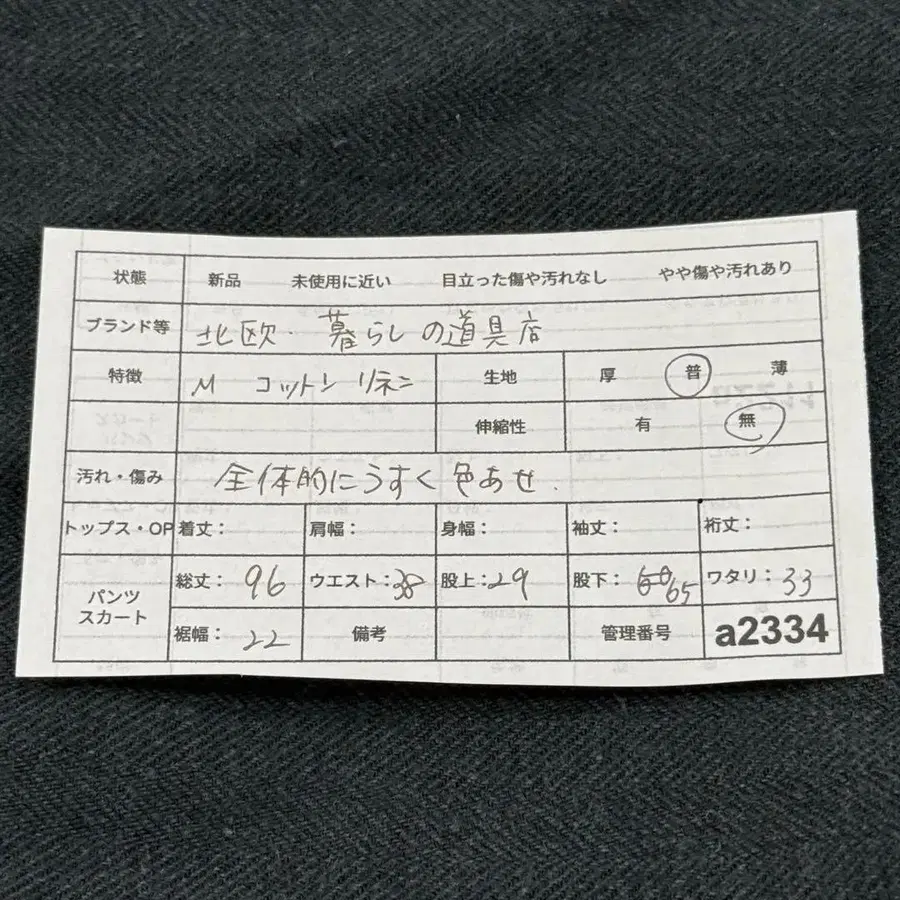 状態 新品 未使用に近い 目立った傷や汚れなし やや傷や汚れあり
ブランド等 北欧、暮らしの道具店
特徴 M コットン リネン 生地 厚 普 薄
伸縮性 有 無
汚れ・傷み 全体的にうすく色あせ.
トップス・OP 着丈: 肩幅: 身幅: 袖丈: 裄丈:
パンツ スカート 総丈: 96 ウエスト: 38 股上: 29 股下: 65 ワタリ: 33
裾幅: 22 備考 管理番号 a2334